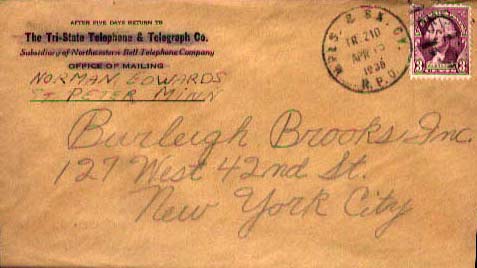 AFTER FIVE DAYS RETURN TO
The Tri-State Telephone & Telegraph Co.
Subsidiary of Northwestern Bell Telephone Company
OFFICE OF MAILING
NORMAN EDWARDS
ST. PETER MINN
MPLS. & SX. CY.
TR. 210
APR 15
1936
R.P.O.
3 3
Burleigh Brooks Inc.
127 West 42nd St.
New York City